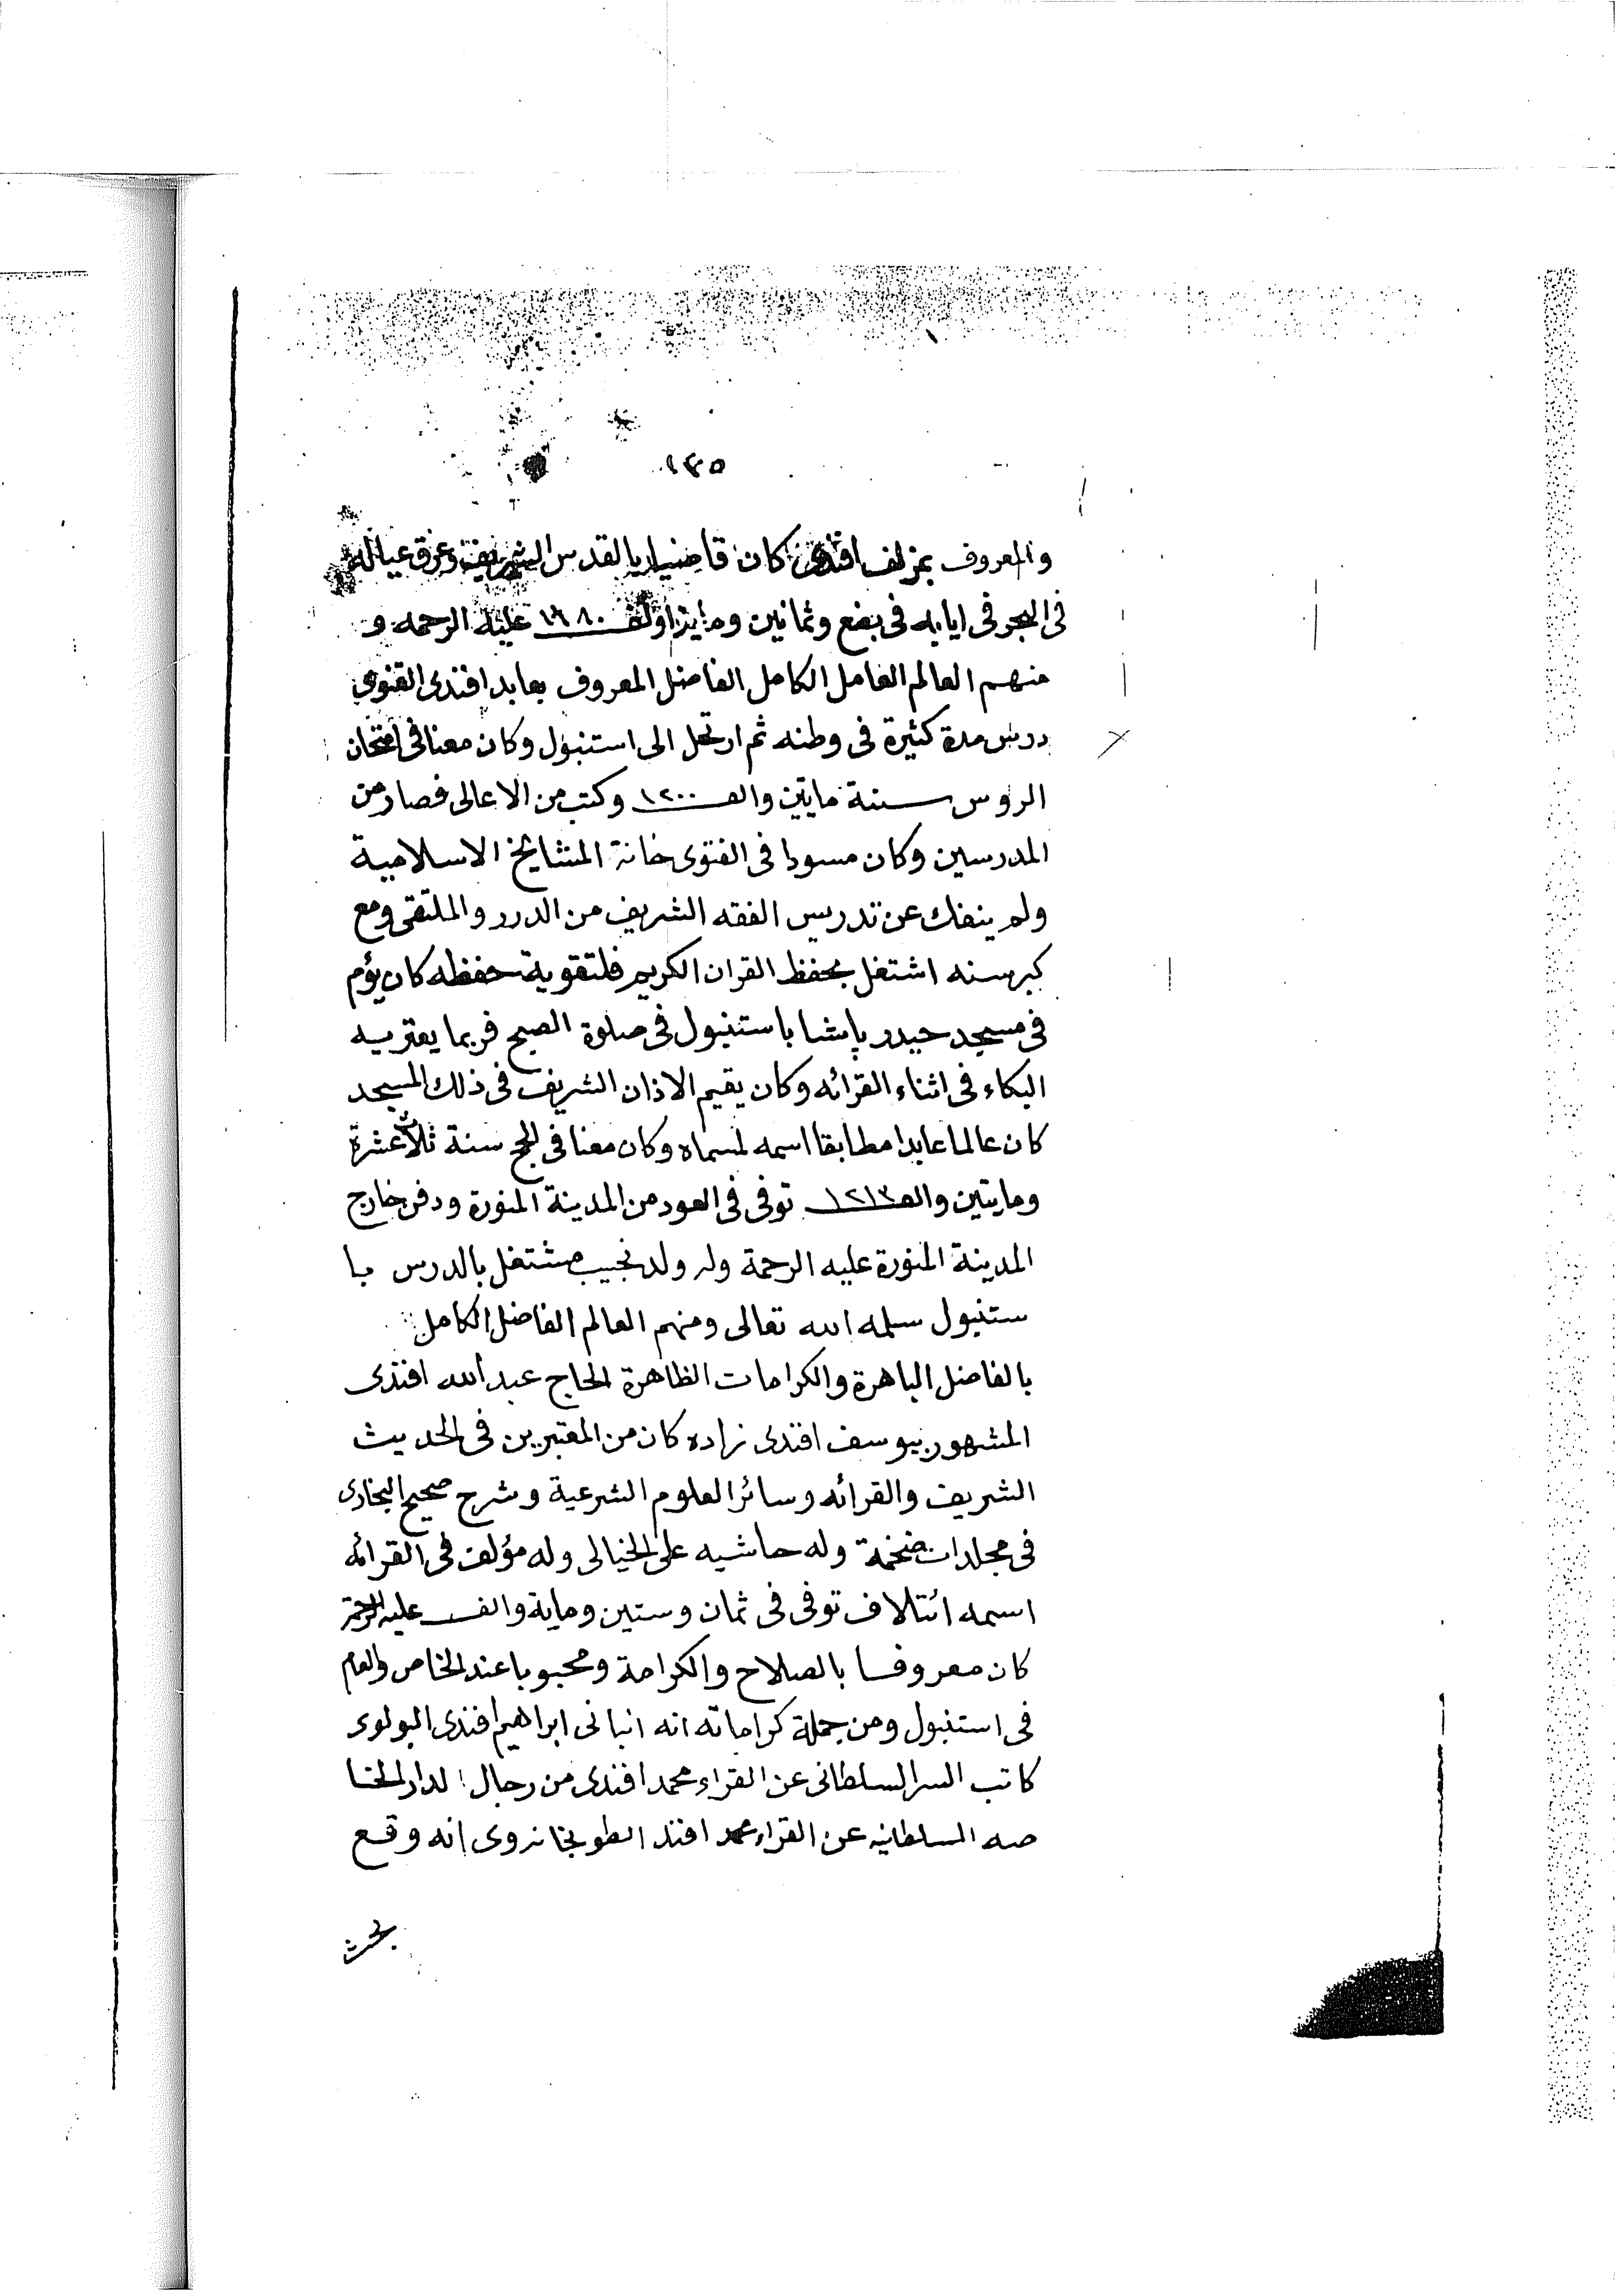 ١٣٥
والمعروف بمزلف افندى كان قاضيا بالقدس الشريف وغرق عياله
فى البحر فى ايابه فى بضع وثمانين وماية والف ١١٨٠ عليه الرحمه و
منهم العالم العامل الكامل الفاضل المعروف بعابد افندى القنوى
درس مدة كثيرة فى وطنه ثم ارتحل الى استنبول وكان معنا فى امتحان
الروس سنة مايتين والف ١٢٠٠ وكتب من الاعالى فصار من
المدرسين وكان مسودا فى الفتوى خانة المشايخ الاسلامية
ولم ينفك عن تدريس الفقه الشريف من الدرر والملتقى ومع
كبر سنه اشتغل بحفظ القران الكريم فلتقوية حفظه كان يؤم
فى مسجد حيدر پاشا باستنبول فى صلوة الصبح فربما يعتريه
البكاء فى اثناء القرائه وكان يقيم الاذان الشريف فى ذلك المسجد
كان عالما عابدا مطابقا اسمه لمسماه وكان معنا فى الحج سنة ثلاث عشرة
ومايتين والف ١٢١٣ توفى فى العود من المدينة المنورة ودفن خارج
المدينة المنورة عليه الرحمة وله ولد نجيب مشتغل بالدرس با
ستنبول سلمه الله تعالى ومنهم العالم الفاضل الكامل
بالفاضل الباهرة والكرامات الظاهرة الحاج عبد الله افندى
المشهور بيوسف افندى زاده كان من المعتبرين فى الحديث
الشريف والقرائه وسائر العلوم الشرعية وشرح صحيح البخارى
فى مجلدات ضخمة وله حاشيه على الخيالى وله مؤلف فى القرائه
اسمه ائتلاف توفى فى ثمان وستين وماية والف عليه الرحمة
كان معروفا بالصلاح والكرامة ومحبوبا عند الخاص والعام
فى استنبول ومن جملة كراماته انه انبانى ابراهيم افندى البولوى
كاتب السر السلطانى عن القراء محمد افندى من رجال الدار الخا
صه السلطانيه عن القراء محمد افند الطوبخانروى انه وقع